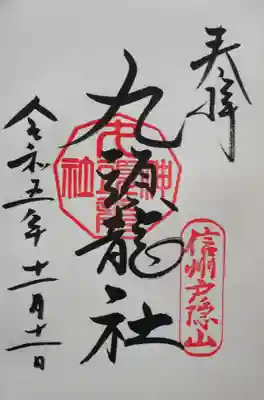 奉拝
信州戸隠山
九頭龍社
令和五年十一月十一日